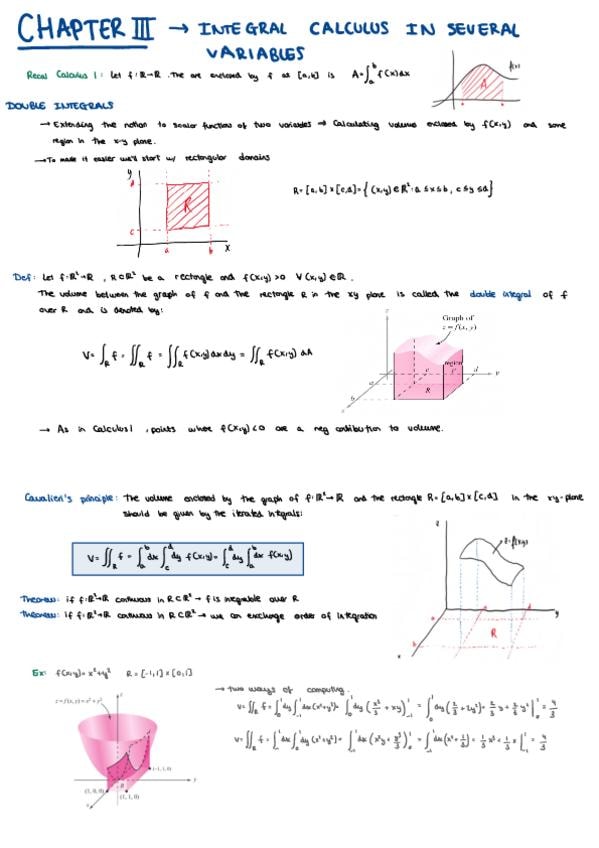 CHAPTER III → INTEGRAL CALCULUS IN SEVERAL
VARIABLES
Recal Calculus 1: Let f: ℝ→ℝ. The are enclosed by f at [a,b] is A=∫_a^b f(x)dx
f(x)
A
a b
DOUBLE INTEGRALS
→ Extending the notion to scalar function of two variables → Calculating volume enclosed by f(x,y) and some
region in the x-y plane.
→ To make it easier we'll start w/ rectangular domains
y
d
R
R=[a,b]×[c,d]={(x,y)∈ℝ²: a≤x≤b, c≤y≤d}
c
a b x
Def: Let f: ℝ²→ℝ, R⊂ℝ² be a rectangle and f(x,y)>0 ∀(x,y)∈R.
The volume between the graph of f and the rectangle R in the xy plane is called the double integral of f
over R and is denoted by:
z
Graph of
z = f(x, y)
V=∫_R f = ∬_R f = ∬_R f(x,y)dxdy = ∬_R f(x,y) dA
region
c d y
a
R
b
x
→ As in Calculus 1, points where f(x,y)<0 are a neg contibution to volume.
Cavalieri's principle: The volume enclosed by the graph of f: ℝ²→ℝ and the rectangle R=[a,b]×[c,d] in the xy-plane
should be given by the iterated integrals:
z
z=f(x,y)
V=∬_R f = ∫_a^b dx ∫_c^d dy f(x,y)= ∫_c^d dy ∫_a^b dx f(x,y)
y
R
x
Theorem: if f: ℝ²→ℝ continuous in R⊂ℝ² → f is integrable over R
Theorem: if f: ℝ²→ℝ continuous in R⊂ℝ² → we can exchange order of integration
Ex: f(x,y)=x²+y² R=[-1,1]×[0,1]
→ two ways of computing.
V=∬_R f = ∫_0^1 dy ∫_-1^1 dx (x²+y²)= ∫_0^1 dy (x³/3 + xy)_-1^1 = ∫_0^1 dy (2/3 + 2y²)= 2/3 y + 2/3 y³ |_0^1 = 4/3
V=∬_R f = ∫_-1^1 dx ∫_0^1 dy (x²+y²)= ∫_-1^1 dx (x²y + y³/3)_0^1 = ∫_-1^1 dx (x²+1/3)= 1/3 x³ + 1/3 x |_-1^1 = 4/3
z = f(x, y) = x² + y²
z
(-1, 1, 0)
y
R
(1, 0, 0)
(1, 1, 0)
x